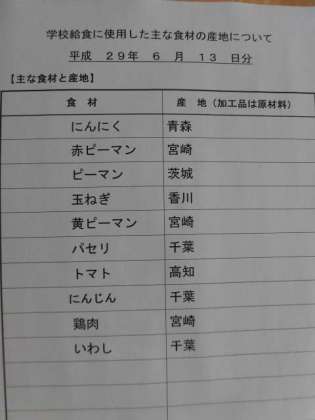 学校給食に使用した主な食材の産地について
平成 29年 6 月 13 日分
【主な食材と産地】
食 材 産 地（加工品は原材料）
にんにく 青森
赤ピーマン 宮崎
ピーマン 茨城
玉ねぎ 香川
黄ピーマン 宮崎
パセリ 千葉
トマト 高知
にんじん 千葉
鶏肉 宮崎
いわし 千葉